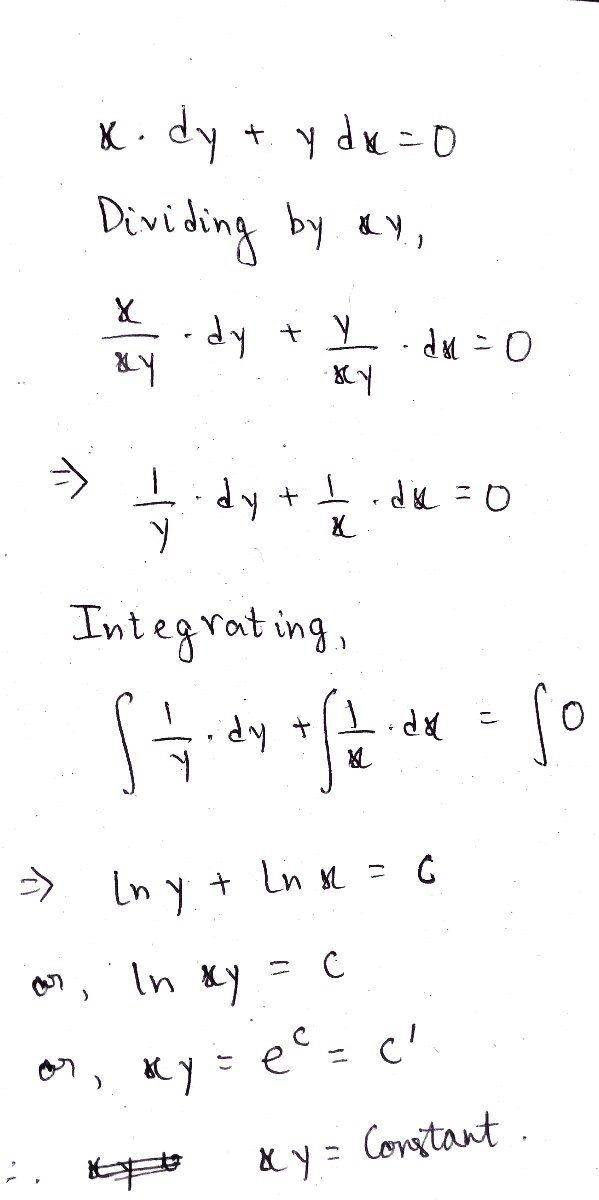 x . dy + y dx = 0
Dividing by xy,
x/xy . dy + y/xy . dx = 0
⇒ 1/y . dy + 1/x . dx = 0
Integrating,
∫ 1/y . dy + ∫ 1/x . dx = ∫ 0
⇒ ln y + ln x = c
or, ln xy = c
or, xy = e^c = c'
∴ xy = Constant.